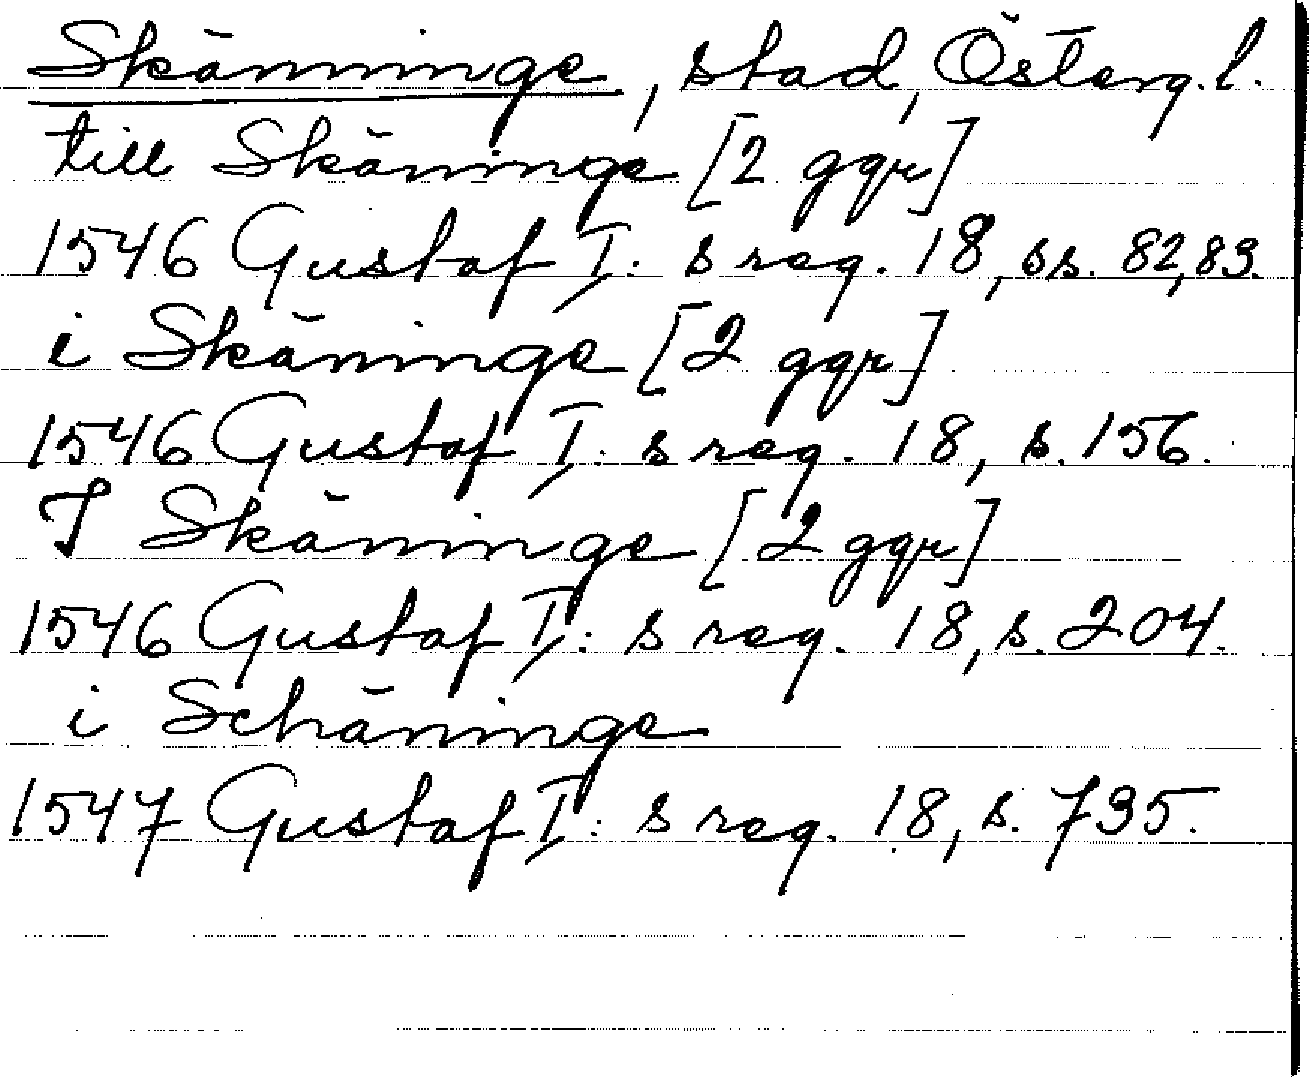 Skänninge, stad, Österg. l.
till Skäninge [2 ggr]
1546 Gustaf I: s reg. 18, ss. 82, 83.
i Skäninge [2 ggr]
1546 Gustaf I: s reg. 18, s. 156.
I Skäninge [2 ggr]
1546 Gustaf I: s reg. 18, s. 204.
i Schäninge
1547 Gustaf I: s reg. 18, s. 735.